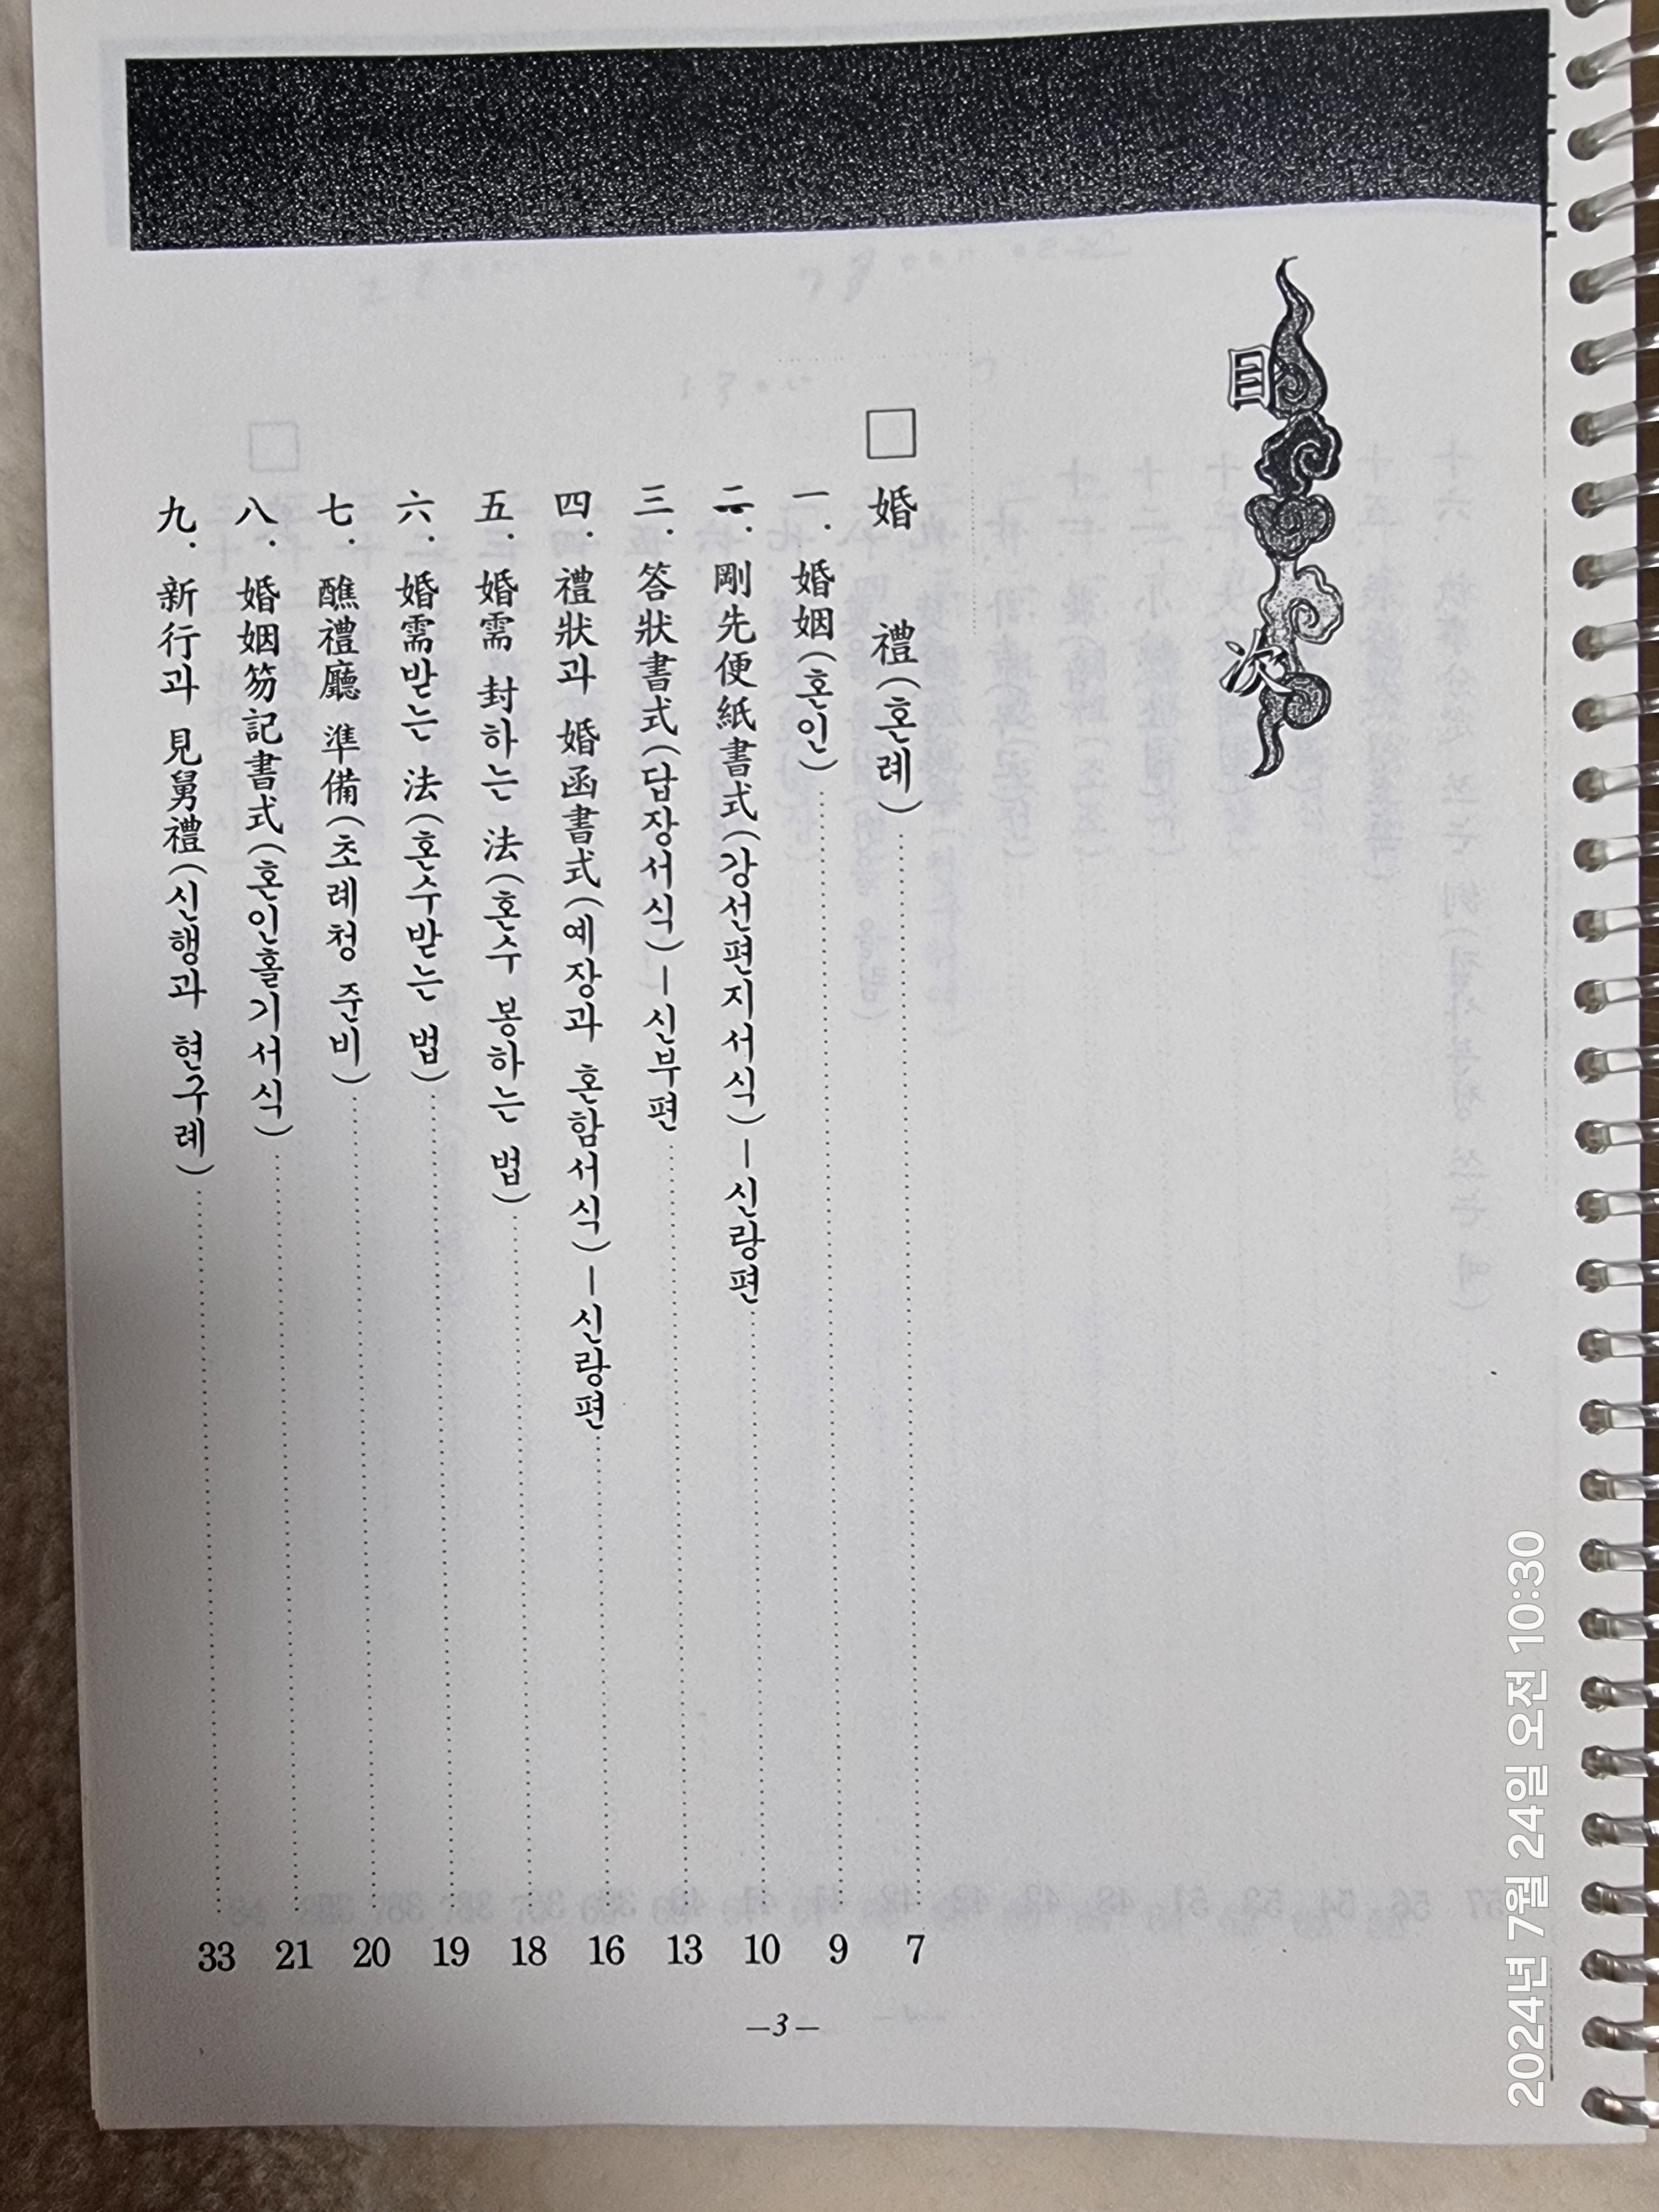 目次
□ 婚 禮(혼례) 7
一. 婚姻(혼인) 9
二. 剛先便紙書式(강선편지서식)—신랑편 10
三. 答狀書式(답장서식)—신부편 13
四. 禮狀과 婚函書式(예장과 혼함서식)—신랑편 16
五. 婚需 封하는 法(혼수 봉하는 법) 18
六. 婚需받는 法(혼수받는 법) 19
七. 醮禮廳 準備(초례청 준비) 20
八. 婚姻笏記書式(혼인홀기서식) 21
九. 新行과 見舅禮(신행과 현구례) 33
—3—
2024년 7월 24일 오전 10:30